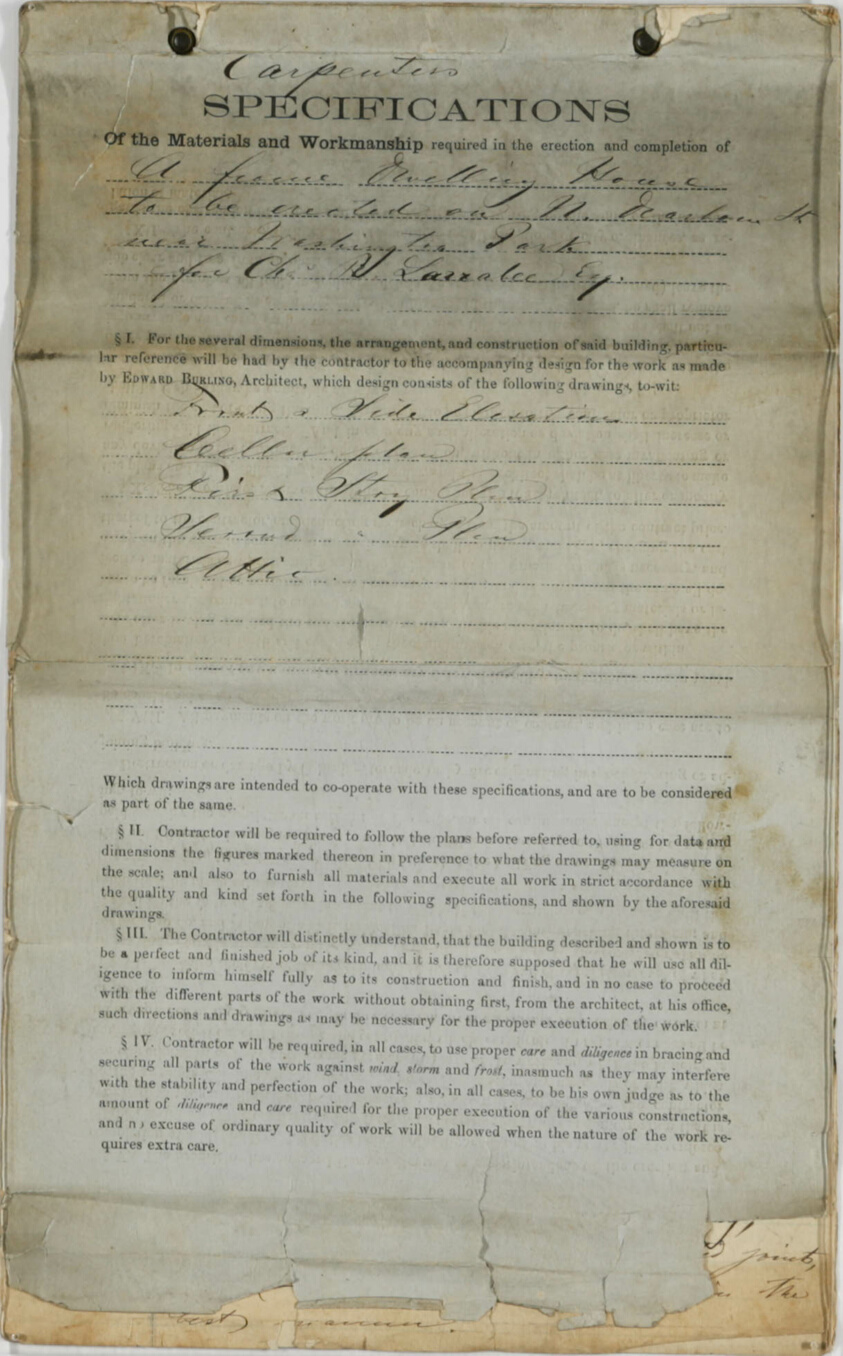 Carpenters
SPECIFICATIONS
Of the Materials and Workmanship required in the erection and completion of
A frame Dwelling House
to be erected on N. Dearborn St
near Washington Park
for Chs R. Larrabee Esq.
§ I. For the several dimensions, the arrangement, and construction of said building, particu-
lar reference will be had by the contractor to the accompanying design for the work as made
by EDWARD BURLING, Architect, which design consists of the following drawings, to-wit:
Front & Side Elevations
Cellar plan
First Story Plan
Second " Plan
Attic
Which drawings are intended to co-operate with these specifications, and are to be considered
as part of the same.
§ II. Contractor will be required to follow the plans before referred to, using for data and
dimensions the figures marked thereon in preference to what the drawings may measure on
the scale; and also to furnish all materials and execute all work in strict accordance with
the quality and kind set forth in the following specifications, and shown by the aforesaid
drawings.
§ III. The Contractor will distinctly understand, that the building described and shown is to
be a perfect and finished job of its kind, and it is therefore supposed that he will use all dil-
igence to inform himself fully as to its construction and finish, and in no case to proceed
with the different parts of the work without obtaining first, from the architect, at his office,
such directions and drawings as may be necessary for the proper execution of the work.
§ IV. Contractor will be required, in all cases, to use proper care and diligence in bracing and
securing all parts of the work against wind, storm and frost, inasmuch as they may interfere
with the stability and perfection of the work; also, in all cases, to be his own judge as to the
amount of diligence and care required for the proper execution of the various constructions,
and no excuse of ordinary quality of work will be allowed when the nature of the work re-
quires extra care.
joint,
in the
best manner.